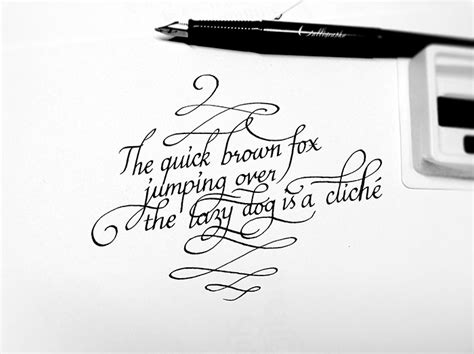 The quick brown fox
jumping over
the lazy dog is a cliché